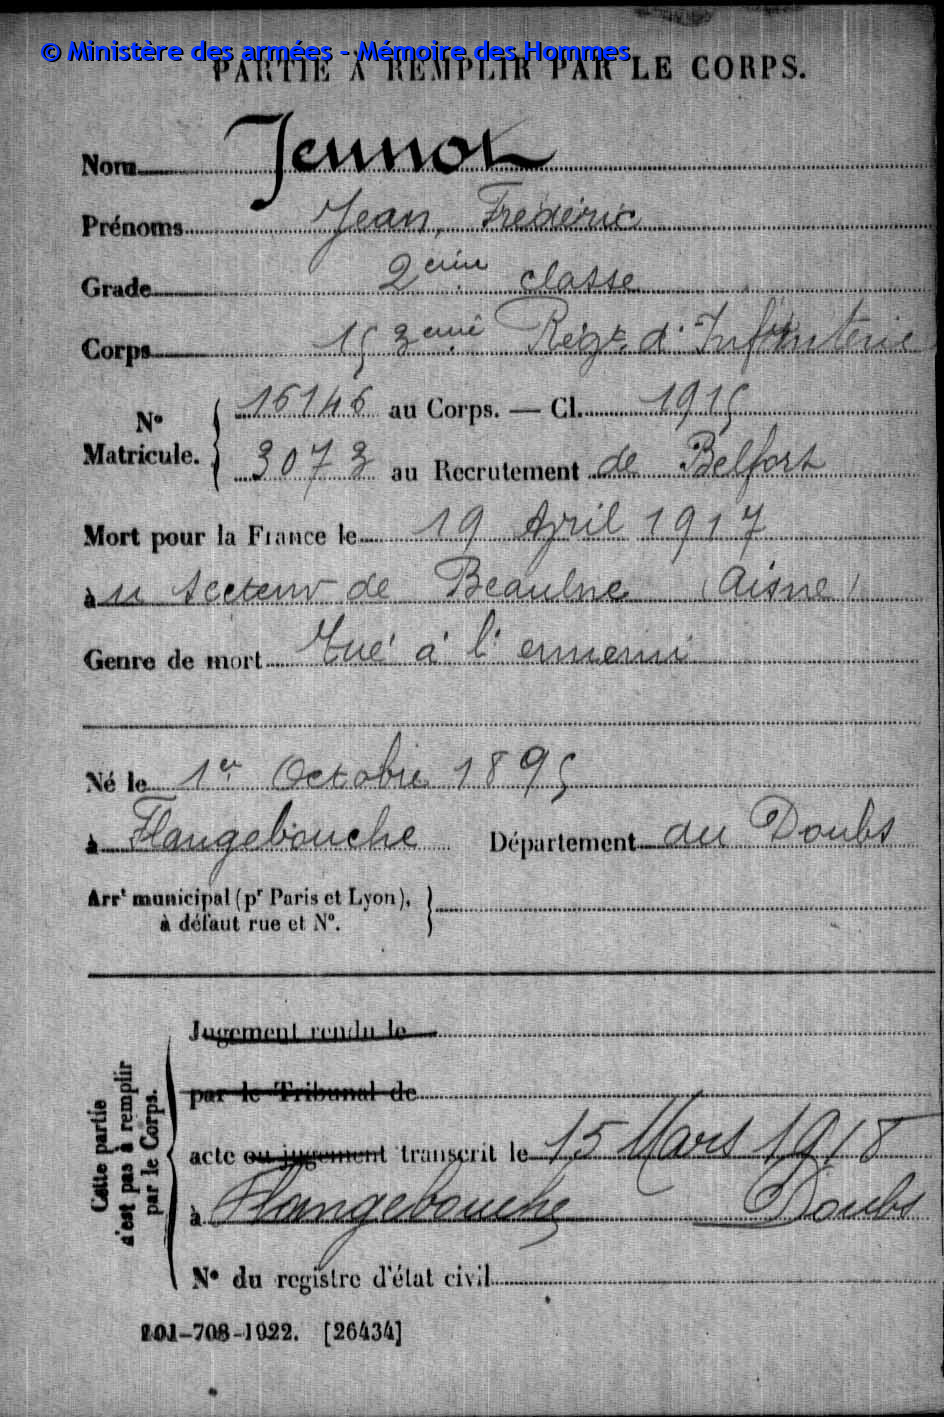 © Ministère des armées - Mémoire des Hommes
PARTIE À REMPLIR PAR LE CORPS.
Nom Jeunot
Prénoms Jean, Frédéric
Grade 2ème classe
Corps 153ème Régt. d'Infanterie
N° Matricule. 16146 au Corps. — Cl. 1915
3073 au Recrutement de Belfort
Mort pour la France le 19 April 1917
à u secteur de Beaulne (Aisne)
Genre de mort Tué à l'ennemi
Né le 1er Octobre 1895
à Flangebouche Département du Doubs
Arrt municipal (pr Paris et Lyon),
à défaut rue et N°.
Cette partie n'est pas à remplir par le Corps.
Jugement rendu le
par le Tribunal de
acte ou jugement transcrit le 15 Mars 1918
à Flangebouche Doubs
N° du registre d'état civil
101-708-1922. [26434]